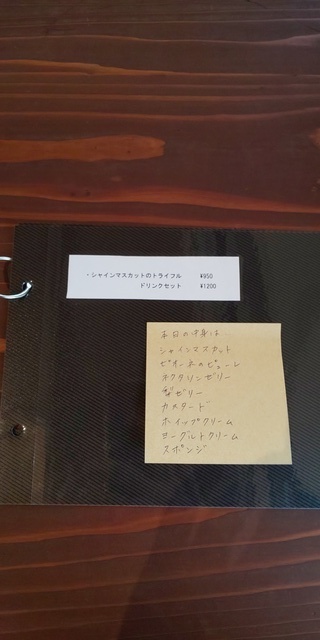 ・シャインマスカットのトライフル ¥950
ドリンクセット ¥1200
本日の中身は…
シャインマスカット
ピオーネのピューレ
ネクタリンゼリー
ゼリー
カスタード
ホイップクリーム
ヨーグルトクリーム
スポンジ